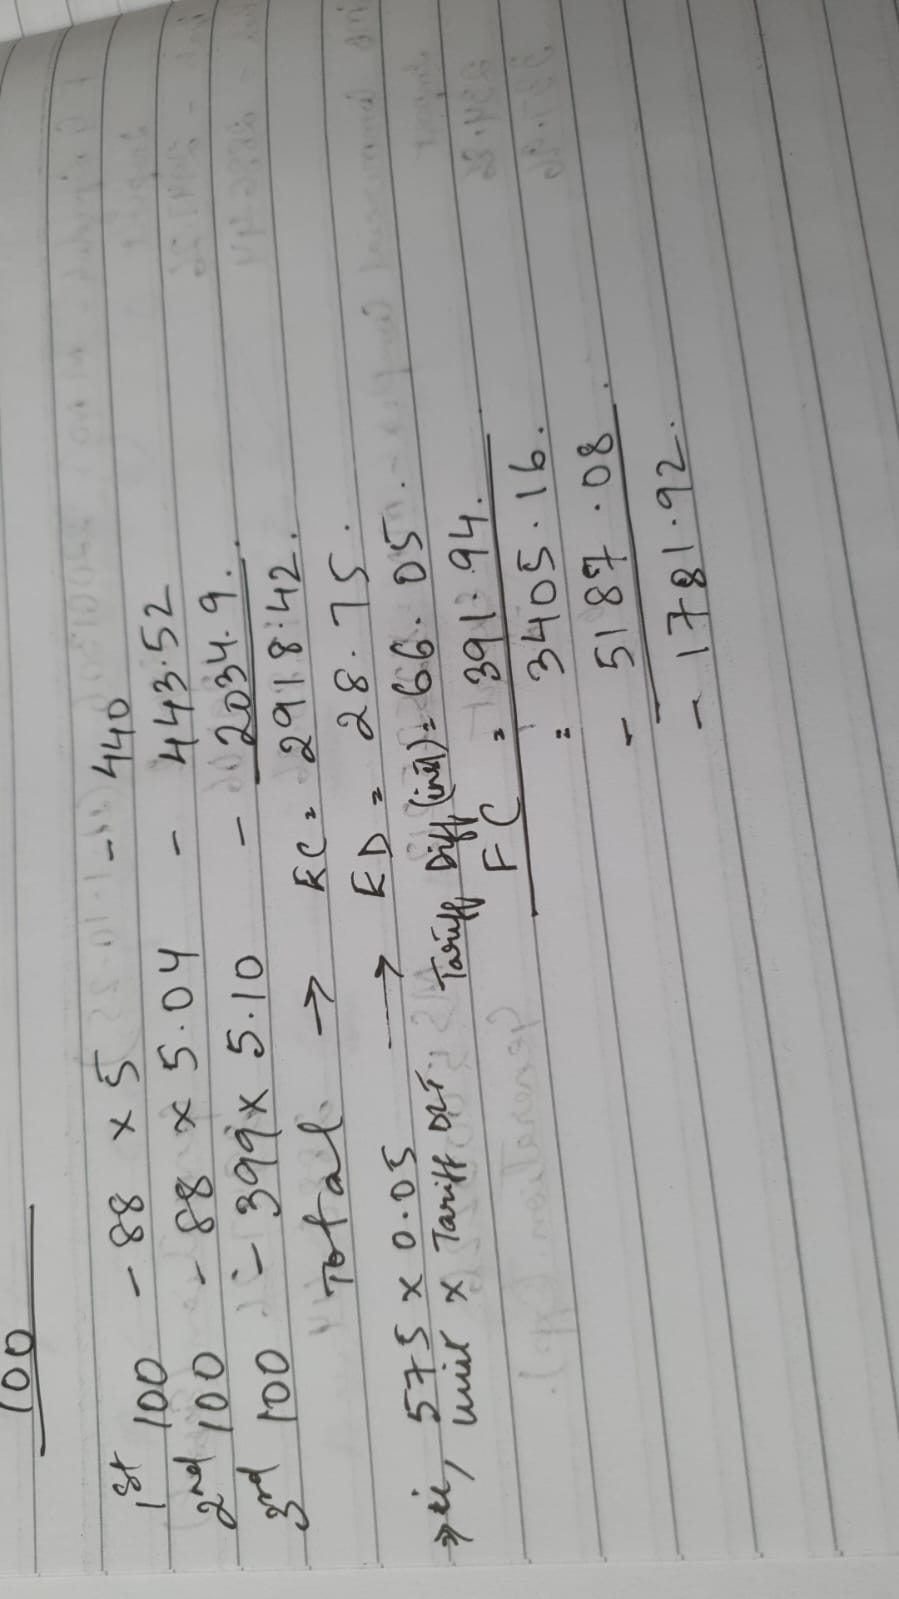 100
1st 100 - 88 x 5 - 440
2nd 100 - 88 x 5.04 - 443.52
3rd 100 - 399 x 5.10 - 2034.9.
Total → EC = 2918.42.
ED = 28.75.
⇒ ie, 575 x 0.05 → Tariff Diff (inst) = 66.05.
unit x Tariff DLT. FC = 391.94.
= 3405.16.
- 5187.08.
- 1781.92.